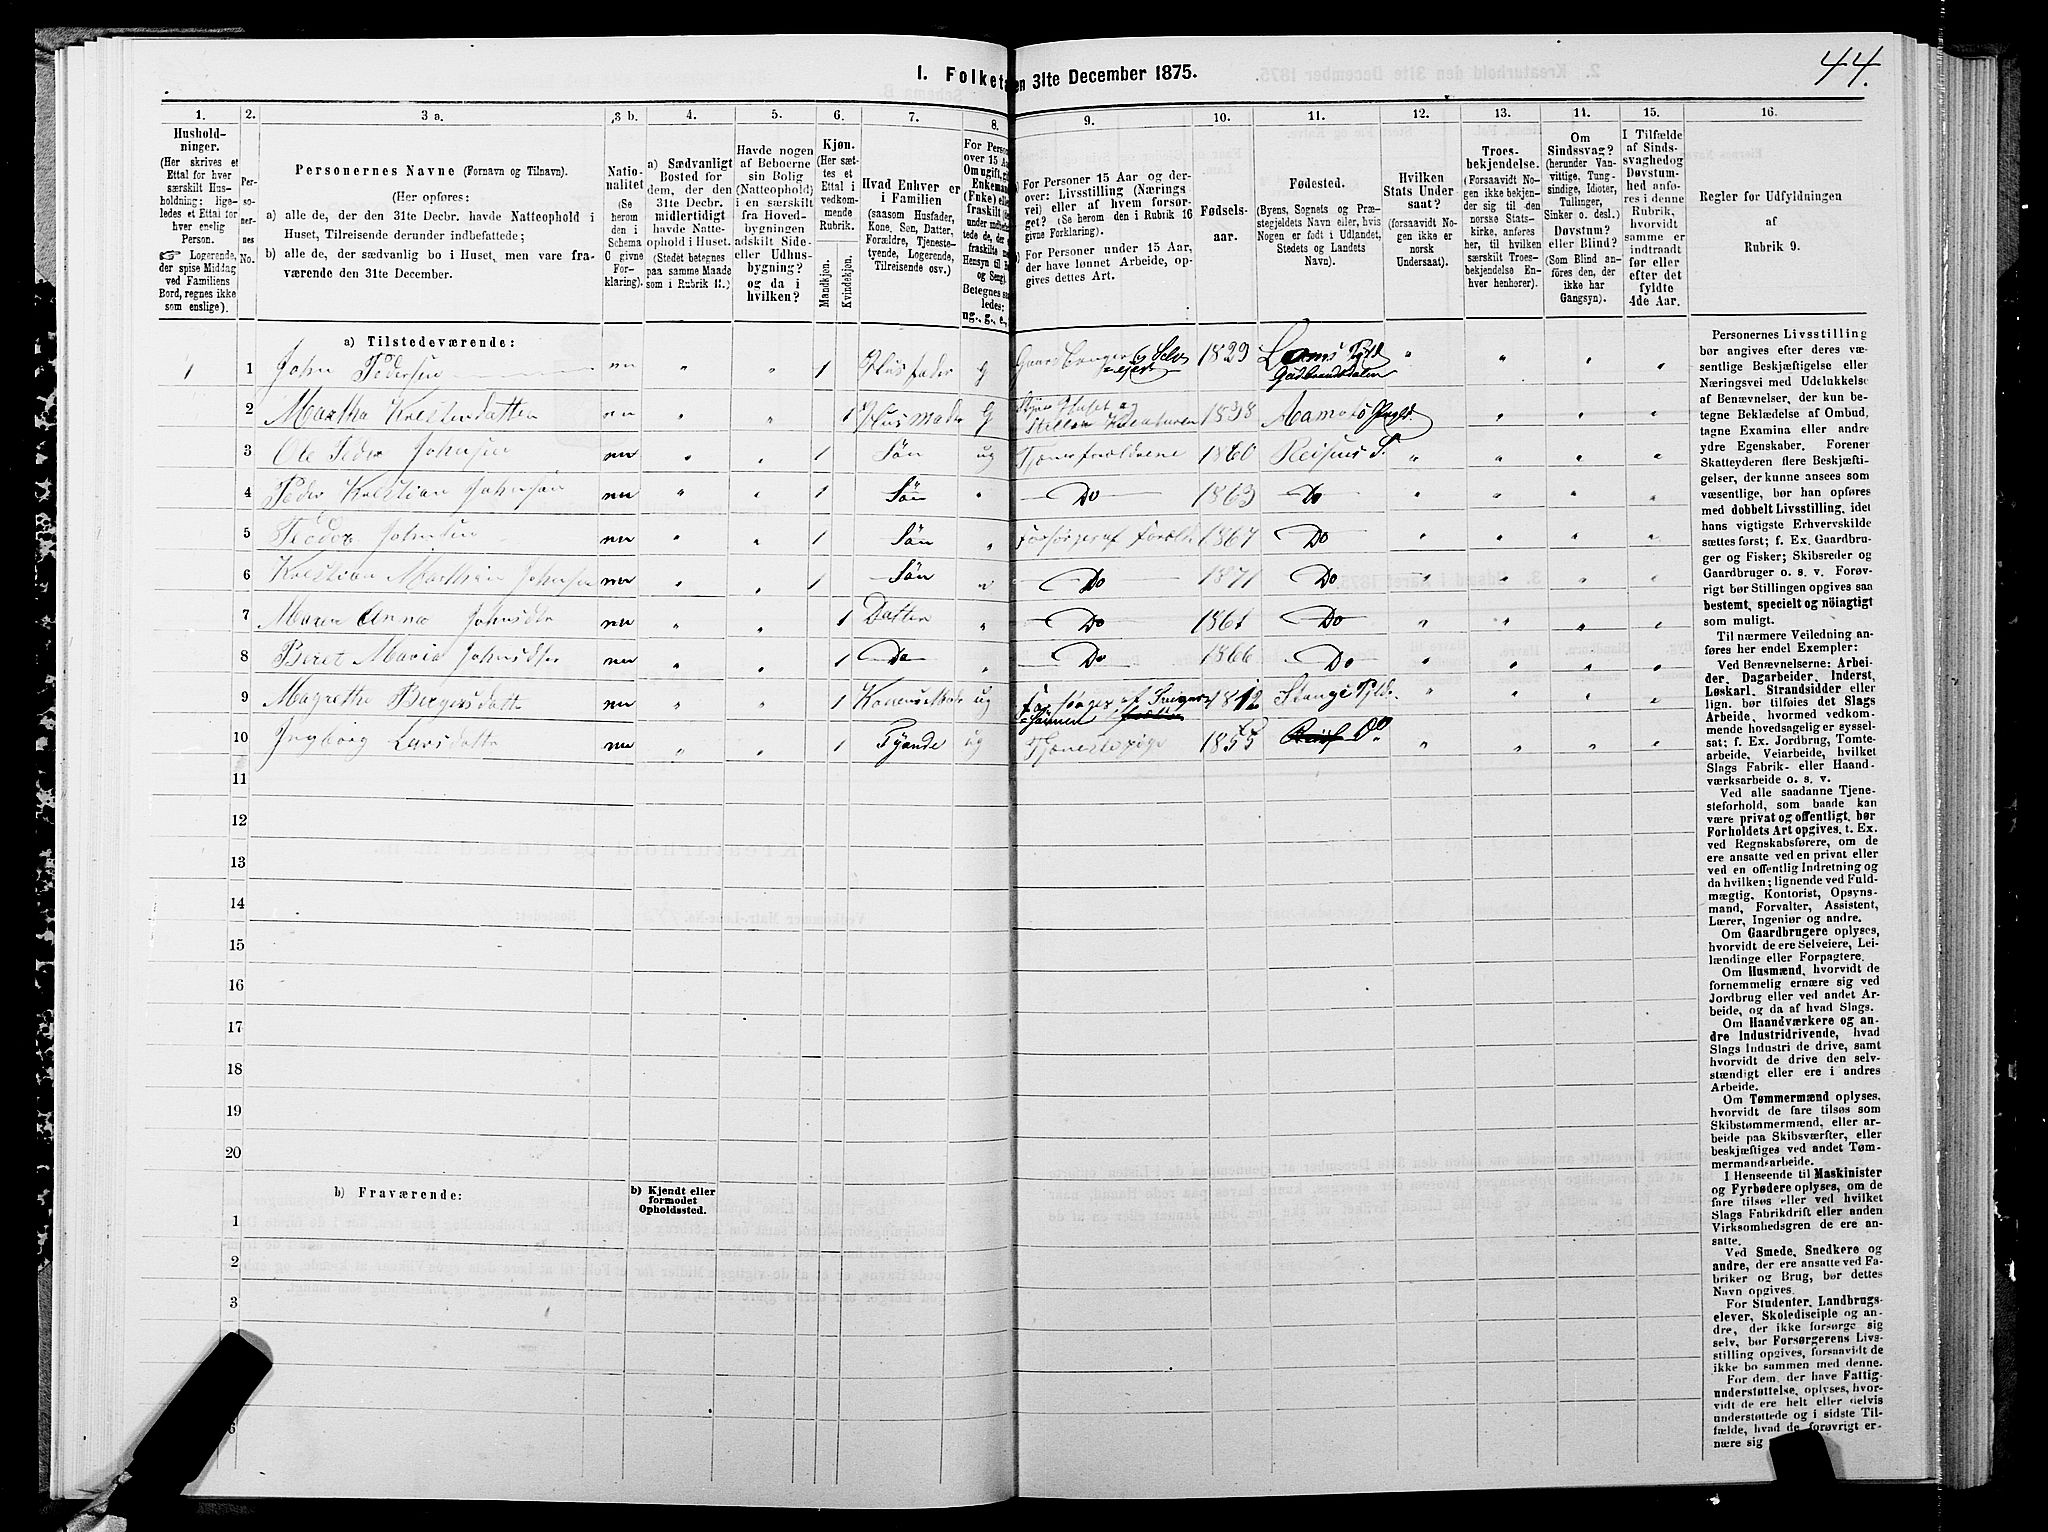 44.
I. Folketæ
en 31te December 1875.
1. 2. 3 a. 3 b. 4. 5. 6. 7. 8. 9. 10. 11. 12. 13. 14. 15. 16.
Hushold-
ninger.
(Her skrives et
Ettal for hver
særskilt Hus-
holdning: lige-
ledes et Ettal for
hver enslig
Person.
☞ Logerende,
der spise Middag
ved Familiens
Bord, regnes ikke
som enslige).
Per-
so-
ner-
nes
No.
Personernes Navne (Fornavn og Tilnavn).
(Her opføres:
a) alle de, der den 31te Decbr. havde Natteophold i
Huset, Tilreisende derunder indbefattede;
b) alle de, der sædvanlig bo i Huset, men vare fra-
værende den 31te December.
Natio-
nalitet
(Se
herom
den i
Schema
C givne
For-
klaring).
a) Sædvanligt
Bosted for
dem, der den
31te Decbr.
midlertidigt
havde Natte-
ophold i Huset.
(Stedet betegnes
paa samme Maade
som i Rubrik 11.)
Havde nogen
af Beboerne
sin Bolig
(Natteophold)
i en særskilt
fra Hoved-
bygningen
adskilt Side-
eller Udhus-
bygning?
og da i
hvilken?
Kjøn.
(Her sæt-
tes et
Ettal i
vedkom-
mende
Rubrik.
Mandkjøn.
Kvindekjøn.
Hvad Enhver er
i Familien
(saasom Husfader,
Kone, Søn, Datter,
Forældre, Tjeneste-
tyende, Logerende,
Tilreisende osv.)
For Person
over 15 Aa
Om ugift, gi
Enkeman
(Enke) elle
fraskilt (de
ng., g., e.,
For Personer 15 Aar og der-
over: Livsstilling (Nærings
vei) eller af hvem forsør-
get? (Se herom i Rubrik 16
givne Forklaring).
For Personer under 15 Aar,
der have lønnet Arbeide, op-
gives dettes Art.
Fødsels-
aar.
Fødested.
(Byens, Sognets og Præ-
stegjeldets Navn eller, hvis
Nogen er født i Udlandet,
Stedets og Landets
Navn).
Hvilken
Stats Under-
saat?
(forsaavidt No-
gen ikke er
norsk
Undersaat).
Troes-
bekjendelse.
(Forsaavidt No-
gen ikke bekjen-
der sig til den
norske Stats-
kirke, anføres
her, til hvilken
særskilt Troes-
bekjendelse En-
hver henhører).
Om
Sindssvag?
(herunder Van-
vittige, Tung-
sindige, Idioter,
Tullinger,
Sinker o. desl.)
Døvstum?
eller Blind?
(Som Blind an-
føres den, der
ikke har
Gangsyn).
I Tilfælde
af Sinds-
svaghedog
Døvstum-
hed anfø-
res i denne
Rubrik,
hvorvidt
samme er
indtraadt
før eller
efter det
fyldte
4de Aar.
Regler for Udfyldningen
af
Rubrik 9.
a) Tilstedeværende:
1 1 John Pedersen nn " " 1 Husfader G Gaardbruger Selv-
eier 1829 Loms Pgld
Gudbrandsdalen " " " "
2 Martha Kristensdatter nn " " 1 Husmoder G Huset og
Kreaturen 1838 Aamots Pgld. " " "
3 Ole Peder Johnsen nn " " 1 Søn ug Tjener forældrene 1860 Reisens S. " " " "
4 Peder Kristian Johnsen nn " " 1 Søn " Do 1863 Do " " " "
5 Johnsen nn " " 1 Søn " Forsørges af Foræld 1867 Do " " " "
6 Kristian Mathias Johnsen nn " " 1 Søn " Do 1871 Do " " " "
7 Maren Anna Johnsdtr nn " " 1 Datter " Do 1861 Do " " " "
8 Beret Maria Johnsdtr nn " " 1 Do " Do 1866 Do " " " "
9 Magrethe Bergersdatter nn " " 1 Konens Moder ug Forsørges af Sviger-
sønnen 1812 Stange Pgld. " " "
10 Ingborg Larsdatter nn " " 1 Tyende ug Tjenestepige 1855 Do " " " "
11
12
13
14
15
16
17
18
19
20
b) Fraværende:
b) Kjendt eller
formodet
Opholdssted.
1
2
3
6
Personernes Livsstilling
bør angives efter deres væ-
sentlige Beskjæftigelse eller
Næringsvei med Udelukkelse
af Benævnelser, der kun be-
tegne Beklædelse af Ombud,
tagne Examina eller andre
ydre Egenskaber. Forener
Skatteyderen flere Beskjæfti-
gelser, der kunne ansees som
væsentlige, bør han opføres
med dobbelt Livsstilling, idet
hans vigtigste Erhvervskilde
sættes først; f. Ex. Gaardbru-
ger og Fisker; Skibsreder og
Gaardbruger o. s. v. Forøv-
rigt bør Stillingen opgives saa
bestemt, specielt og nöiagtigt
som muligt.
Til nærmere Veiledning an-
føres her endel Exempler:
Ved Benævnelserne: Arbei-
der, Dagarbeider, Inderst,
Løskarl, Strandsidder eller
lign. bør tilføies det Slags
Arbeide, hvormed vedkom-
mende hovedsagelig er syssel-
sat; f. Ex. Jordbrug, Tomte-
arbeide, Veiarbeide, hvilket
Slags Fabrik- eller Haand-
værksarbeide o. s. v.
Ved alle saadanne Tjene-
steforhold, som baade kan
være privat og offentligt, bør
Forholdets Art opgives, t. Ex.
ved Regnskabsførere, om de
ere ansatte ved en privat eller
ved en offentlig Indretning og
da hvilken; lignende ved Fuld-
mægtig, Kontorist, Opsyns-
mand, Forvalter, Assistent,
Lærer, Ingeniør og andre.
Om Gaardbrugere oplyses,
hvorvidt de ere Selveiere, Lei-
lændinge eller Forpagtere.
Om Husmænd, hvorvidt de
fornemmelig ernære sig ved
Jordbrug eller ved andet Ar-
beide, og da af hvad Slags.
Om Haandværkere og an-
dre Industridrivende, hvad
Slags Industri de drive, samt
hvorvidt de drive den selv-
stændigt eller ere i andres
Arbeide.
Om Tømmermænd oplyses,
hvorvidt de fare tilsøs som
Skibstømmermænd, eller ar-
beide paa Skibsværfter, eller
beskjæftiges ved andet Tøm-
mermandsarbeide.
I Henseende til Maskinister
og Fyrbødere oplyses, om de
fare tilsøs eller ved hvilket
Slags Fabrikdrift eller anden
Virksomhedsgren de ere an-
satte.
Ved Smede, Snedkere og
andre, der ere ansatte ved Fa-
briker og Brug, bør dettes
Navn opgives.
For Studenter, Landbrugs-
elever, Skoledisciple og an-
dre, der ikke forsørge sig
selv, bør Forsørgerens Livs-
stilling opgives, forsaavidt de
ikke bo sammen med denne.
For dem, der have Fattig-
understøttelse, oplyses, hvor-
vidt de ere helt eller delvis
understøttede og i sidste Til-
fælde, hvad de forøvrigt er-
nære sig